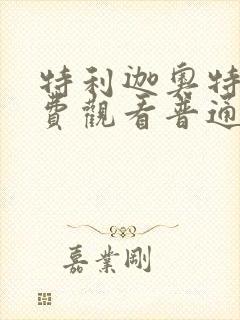 特利迦奧特
費觀看普通
嘉業剛